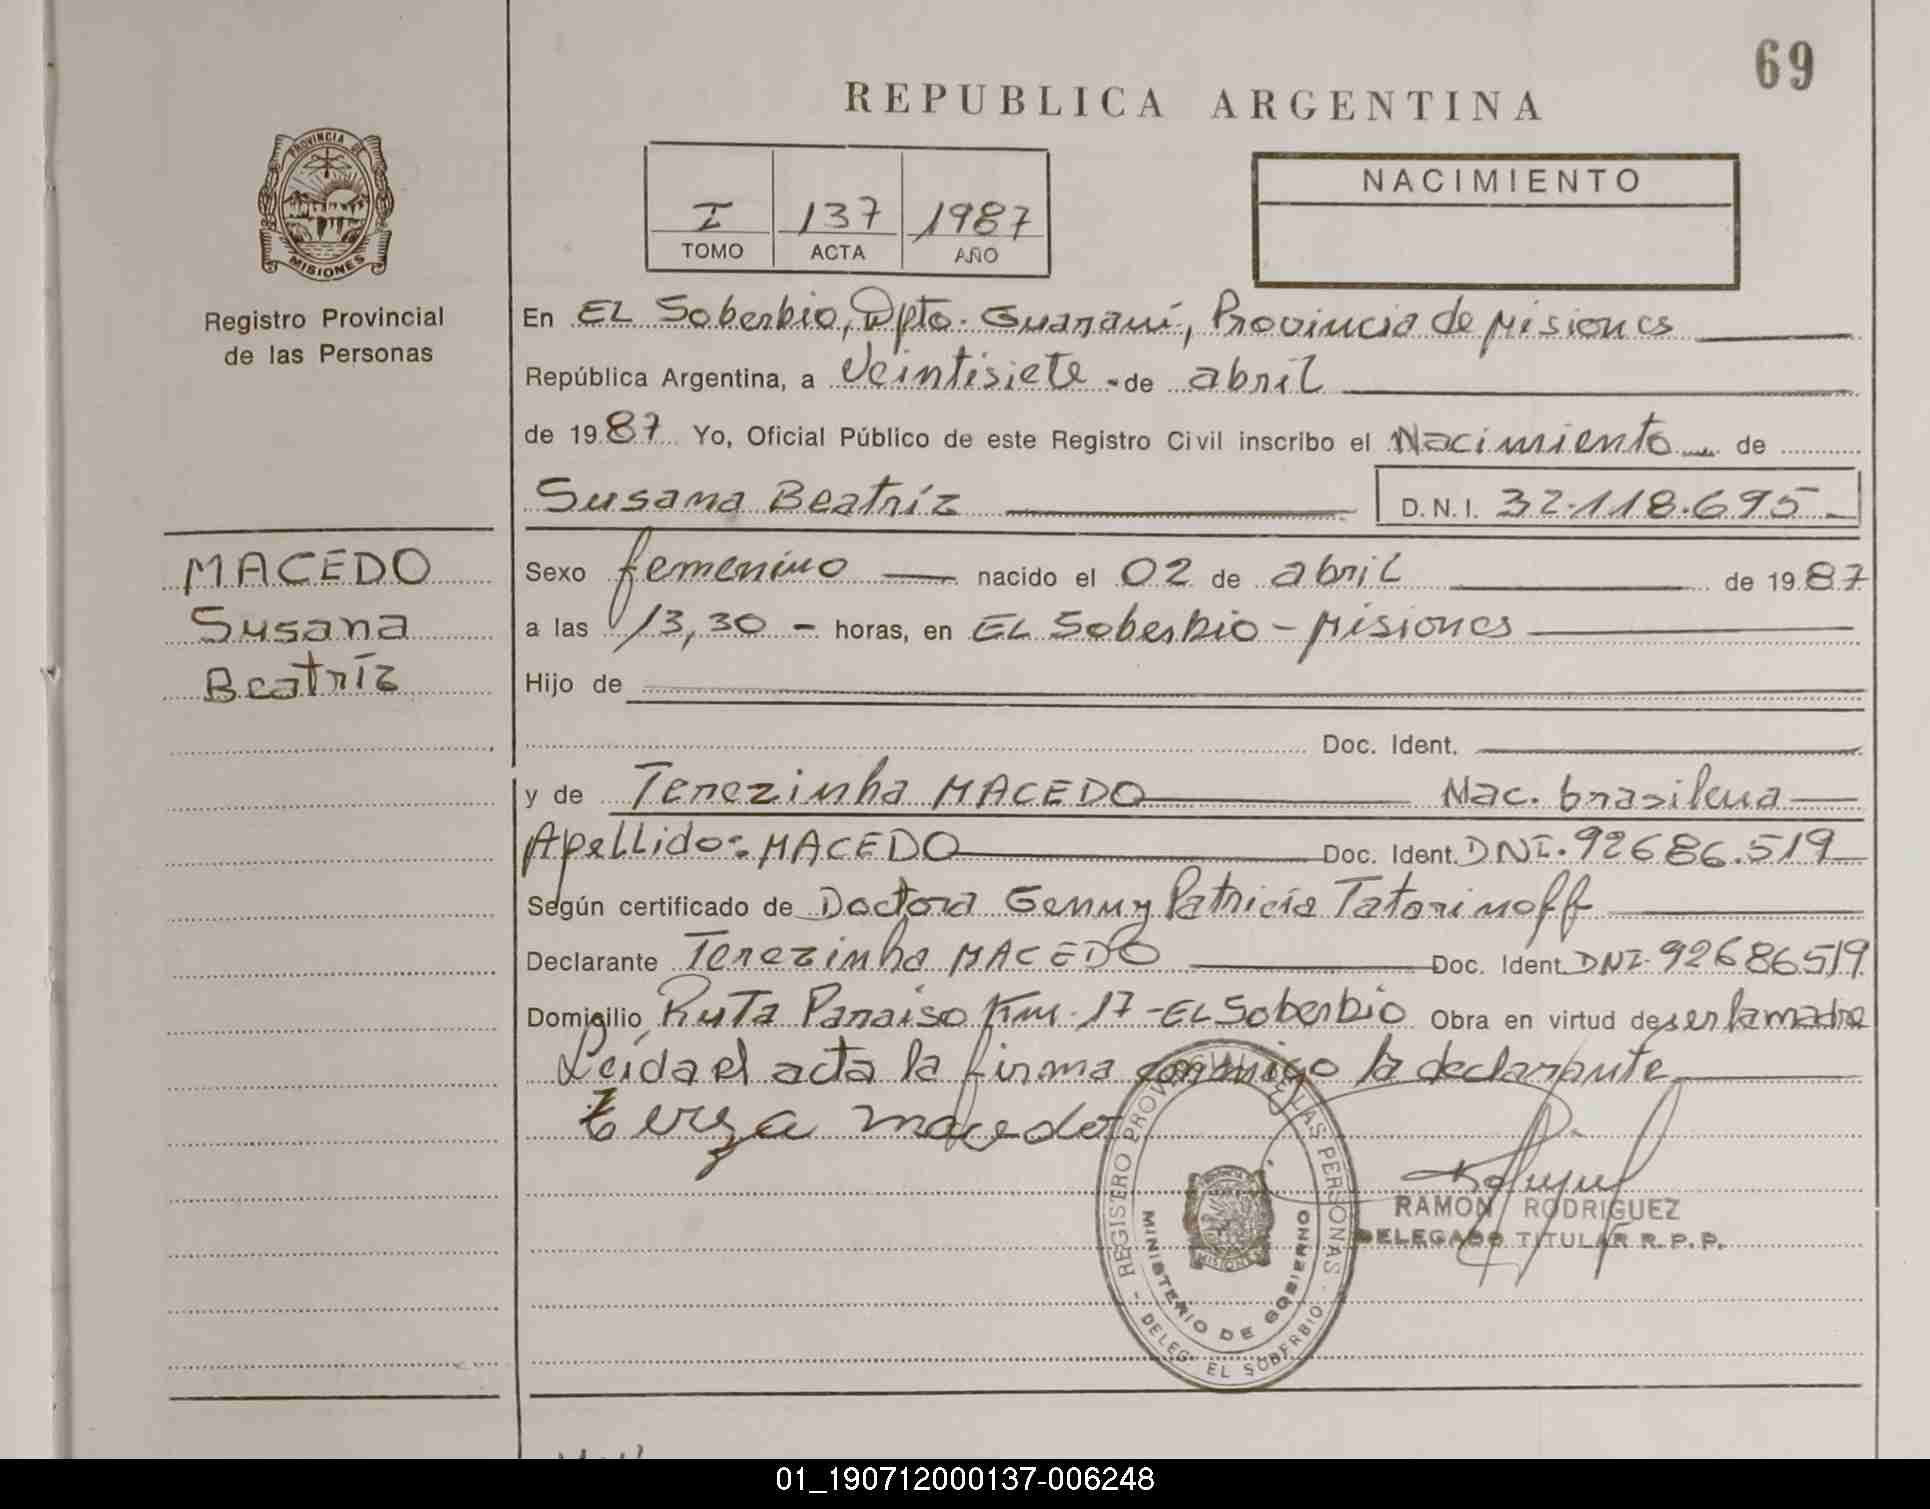 69
REPUBLICA ARGENTINA
PROVINCIA DE
MISIONES
Registro Provincial
de las Personas
I 137 1987
TOMO ACTA AÑO
NACIMIENTO
En EL Soberbio, Dpto. Guaraní, Provincia de Misiones
República Argentina, a Veintisiete - de abril
de 1987 Yo, Oficial Público de este Registro Civil inscribo el Nacimiento de
Susana Beatríz D.N.I. 32.118.695
MACEDO
Susana
Beatríz
Sexo femenino nacido el 02 de abril de 1987
a las 13,30 - horas, en EL Soberbio - Misiones
Hijo de
Doc. Ident.
y de Terezinha MACEDO Nac. brasilena
Apellido: MACEDO Doc. Ident. DNI. 92686.519
Según certificado de Doctora Genny Patricia Tatarinoff
Declarante Terezinha MACEDO Doc. Ident. DNI. 92686519
Domicilio Ruta Paraiso Km. 17 - EL Soberbio Obra en virtud de ser la madre
Leída el acta la firma conmigo la declarante
macedo
REGISTRO PROVINCIAL DE LAS PERSONAS
MINISTERIO DE GOBIERNO
MISIONES
- DELEG. EL SOBERBIO -
RAMON RODRIGUEZ
DELEGADO TITULAR R.P.P.
01_190712000137-006248